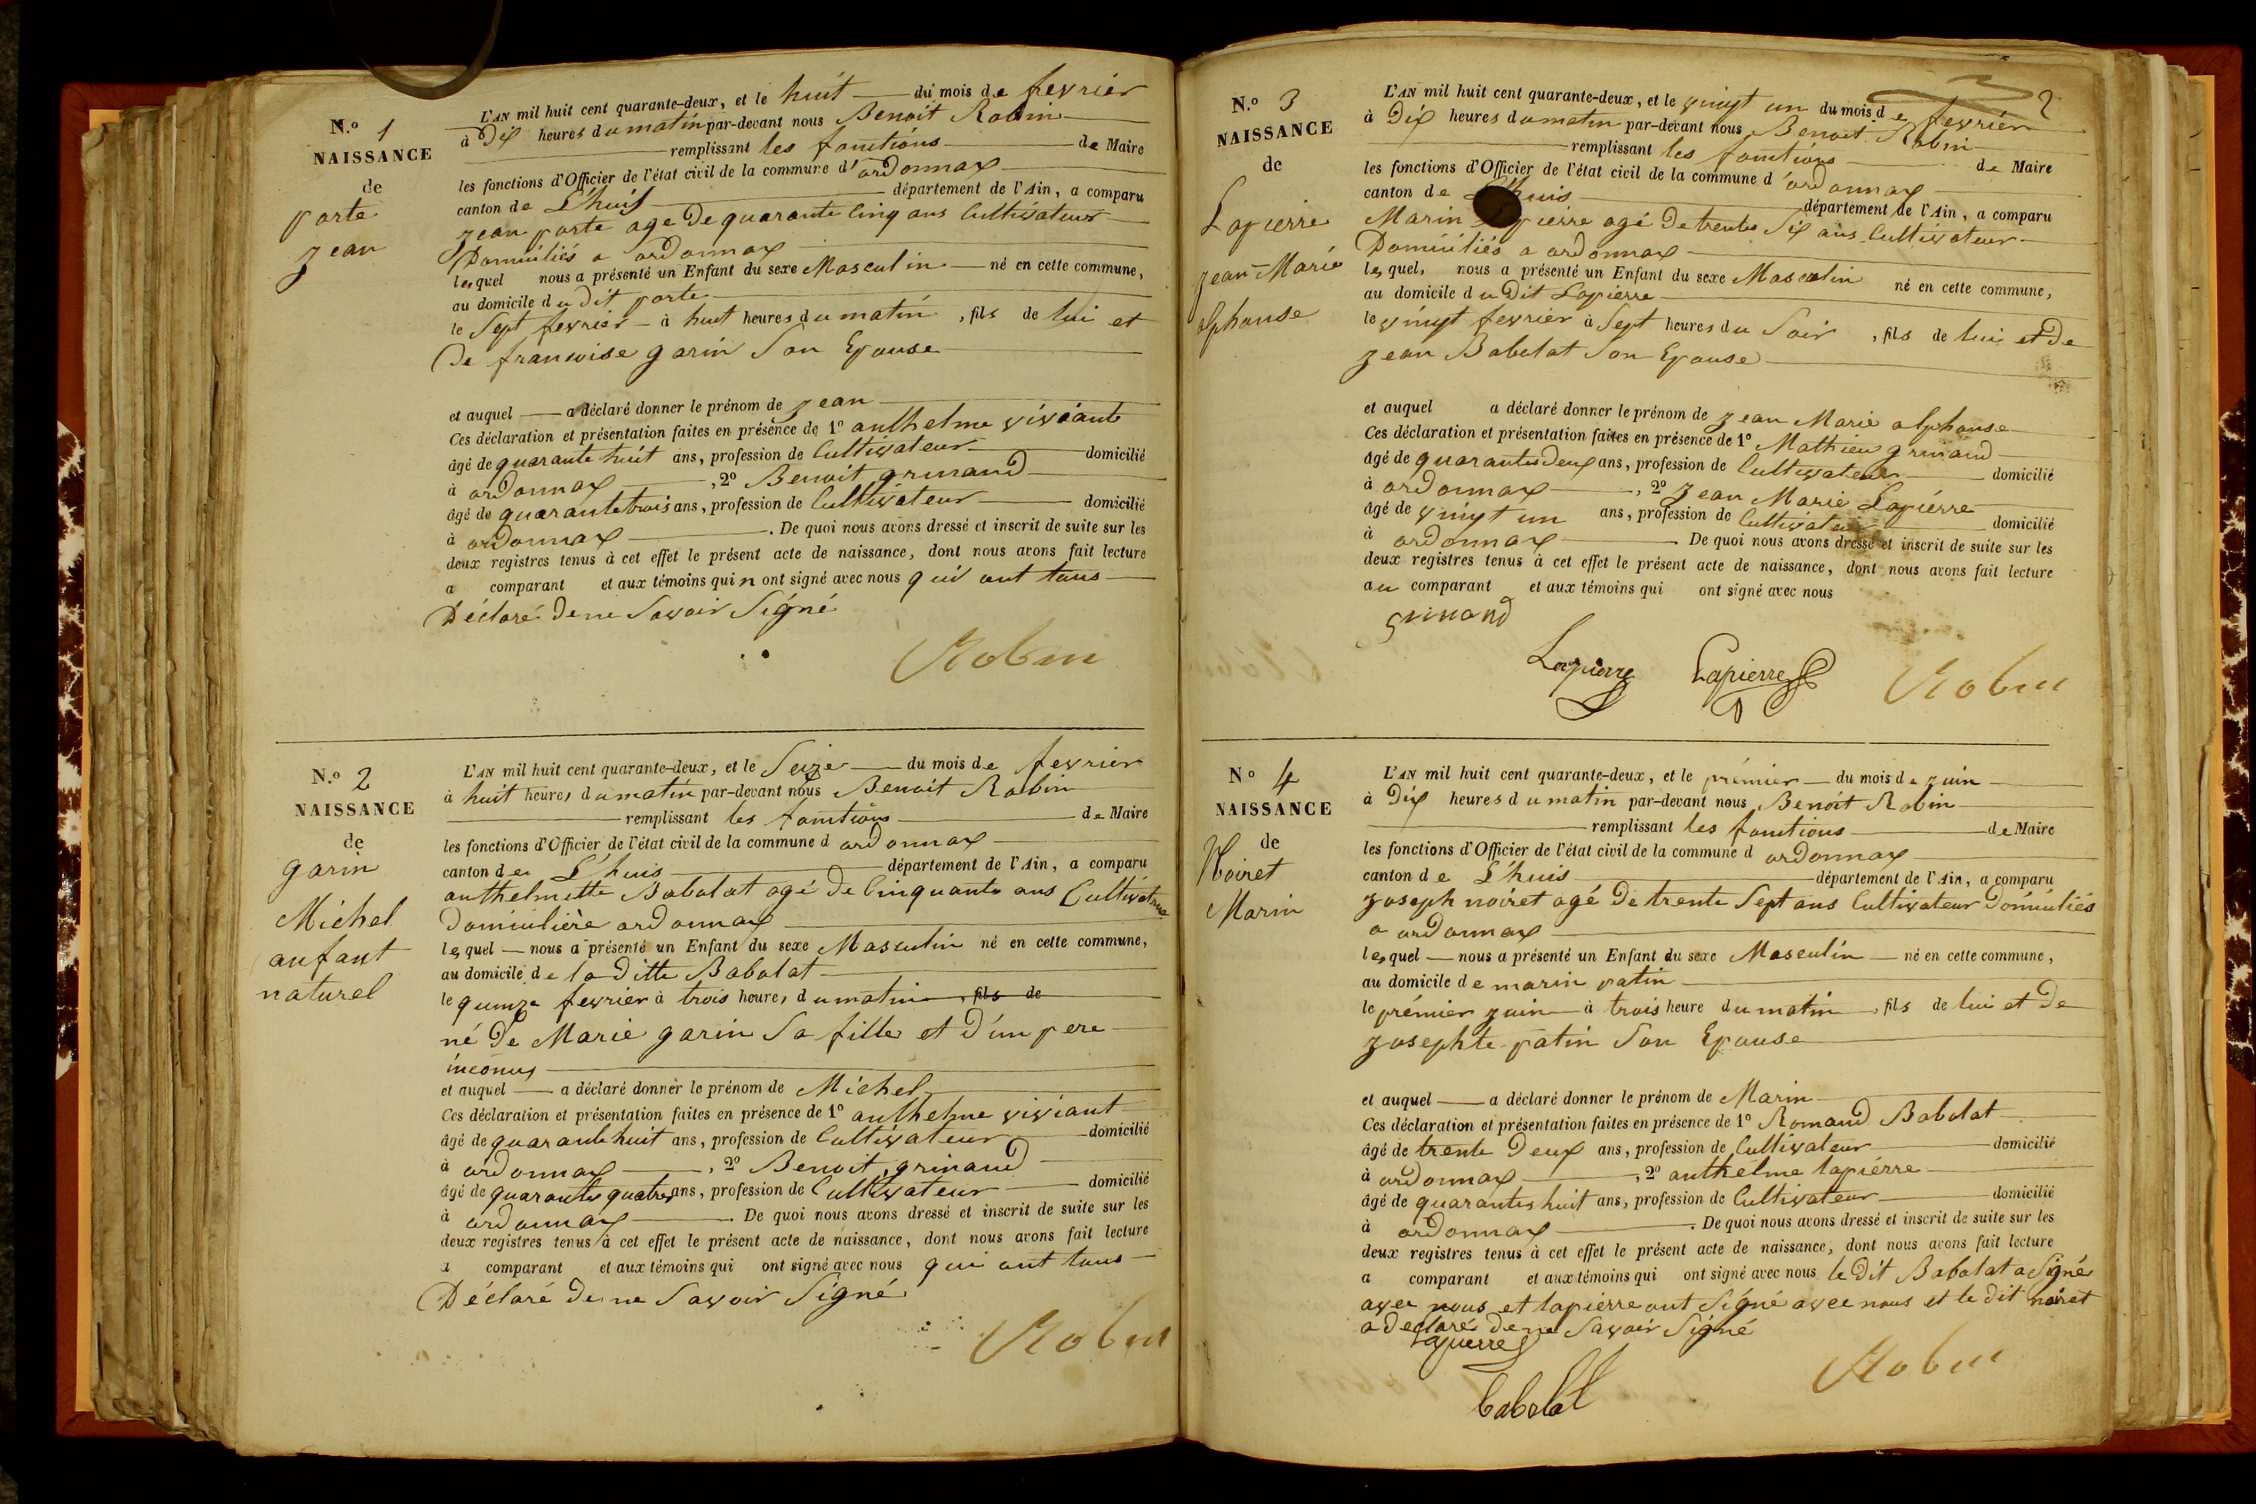 N.o 1
NAISSANCE
de
porte
jean
L'AN mil huit cent quarante-deux, et le huit du mois de fevrier
à Dix heures du matin par-devant nous Benoit Robin
remplissant les fonctions de Maire
les fonctions d'Officier de l'état civil de la commune d'ordonnax
canton de L'huis département de l'Ain, a comparu
jean porte age De quarante Cinq ans Cultivateur
Domiciliés a ordonnax
lequel nous a présenté un Enfant du sexe Masculin né en cette commune,
au domicile du Dit porte
le Sept fevrier à huit heures du matin, fils de lui et
De francoise garin Son Epouse
et auquel a déclaré donner le prénom de jean
Ces déclaration et présentation faites en présence de 1o anthelme viviant
âgé de quarante huit ans, profession de Cultivateur domicilié
à ordonnax, 2o Benoit grinand
âgé de quarante trois ans, profession de Cultivateur domicilié
à ordonnax. De quoi nous avons dressé et inscrit de suite sur les
deux registres tenus à cet effet le présent acte de naissance, dont nous avons fait lecture
a comparant et aux témoins qui n ont signé avec nous qui ont tous
Déclaré de ne Savoir Signé
Robin
N.o 2
NAISSANCE
de
garin
Michel
anfant
naturel
L'AN mil huit cent quarante-deux, et le Seize du mois de fevrier
à huit heures du matin par-devant nous Benoit Robin
remplissant les fonctions de Maire
les fonctions d'Officier de l'état civil de la commune d ordonnax
canton de L'huis département de l'Ain, a comparu
anthelmette Babolat agé De Cinquante ans Cultivatrice
Domicilière ordonnax
lequel nous a présenté un Enfant du sexe Masculin né en cette commune,
au domicile de la Ditte Babolat
le quinze fevrier à trois heures du matin, fils de
né De Marie garin Sa fille et D'un pere
inconus
et auquel a déclaré donner le prénom de Michel
Ces déclaration et présentation faites en présence de 1o anthelme viviant
âgé de quarante huit ans, profession de Cultivateur domicilié
à ordonnax, 2o Benoit grinand
âgé de quarante quatres ans, profession de Cultivateur domicilié
à ordonnax. De quoi nous avons dressé et inscrit de suite sur les
deux registres tenus à cet effet le présent acte de naissance, dont nous avons fait lecture
a comparant et aux témoins qui ont signé avec nous qui ont tous
Déclaré de ne Savoir Signé
Robin
2
N.o 3
NAISSANCE
de
Lapierre
jean-Marie
alphonse
L'AN mil huit cent quarante-deux, et le vingt un du mois de fevrier
à Dix heures du matin par-devant nous Benoit Robin
remplissant les fonctions de Maire
les fonctions d'Officier de l'état civil de la commune d'ordonnax
canton de L'huis département de l'Ain, a comparu
Marin Lapierre agé De trente Six ans Cultivateur
Domiciliés a ordonnax
lequel, nous a présenté un Enfant du sexe Masculin né en cette commune,
au domicile du Dit Lapierre
le vingt fevrier à Sept heures du Soir, fils de lui et De
jean Babolat Son Epouse
et auquel a déclaré donner le prénom de jean Marie alphonse
Ces déclaration et présentation faites en présence de 1o Mathieu grinand
âgé de quarantes deux ans, profession de Cultivateur domicilié
à ordonnax, 2o jean Marie Lapiérre
âgé de vingt un ans, profession de Cultivateur domicilié
à ordonnax. De quoi nous avons dressé et inscrit de suite sur les
deux registres tenus à cet effet le présent acte de naissance, dont nous avons fait lecture
au comparant et aux témoins qui ont signé avec nous
Grinand
Lapierre Lapierre Robin
No 4
NAISSANCE
de
Noiret
Marin
L'AN mil huit cent quarante-deux, et le prémier du mois de juin
à Dix heures du matin par-devant nous Benoit Robin
remplissant les fonctions de Maire
les fonctions d'Officier de l'état civil de la commune d ordonnax
canton de L'huis département de l'Ain, a comparu
joseph noiret agé De trente Sept ans Cultivateur Domiciliés
a ordonnax
lequel nous a présenté un Enfant du sexe Masculin né en cette commune,
au domicile de marin patin
le prémier juin à trois heure du matin, fils de lui et De
josephte patin Son Epouse
et auquel a déclaré donner le prénom de Marin
Ces déclaration et présentation faites en présence de 1o Romand Babolat
âgé de trente Deux ans, profession de Cultivateur domicilié
à ordonnax, 2o anthelme lapiérre
âgé de quarantes huit ans, profession de Cultivateur domicilié
à ordonnax. De quoi nous avons dressé et inscrit de suite sur les
deux registres tenus à cet effet le présent acte de naissance, dont nous avons fait lecture
a comparant et aux témoins qui ont signé avec nous le dit Babolat a Signé
avec nous et lapierre ont Signé avec nous et le dit noiret
a declaré de ne Savoir Signé
Lapierre
babolat
Robin